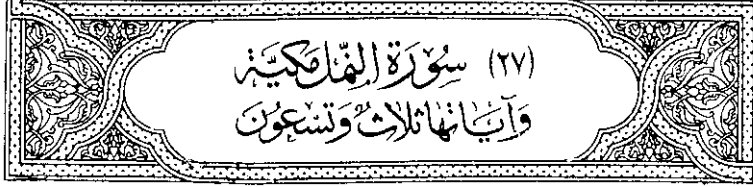 (٢٧) سُوْرَةُ النَّمْلِ مَكِيَّة
وَآيَاتُهَا ثَلَاثٌ وَتِسْعُوْنَ